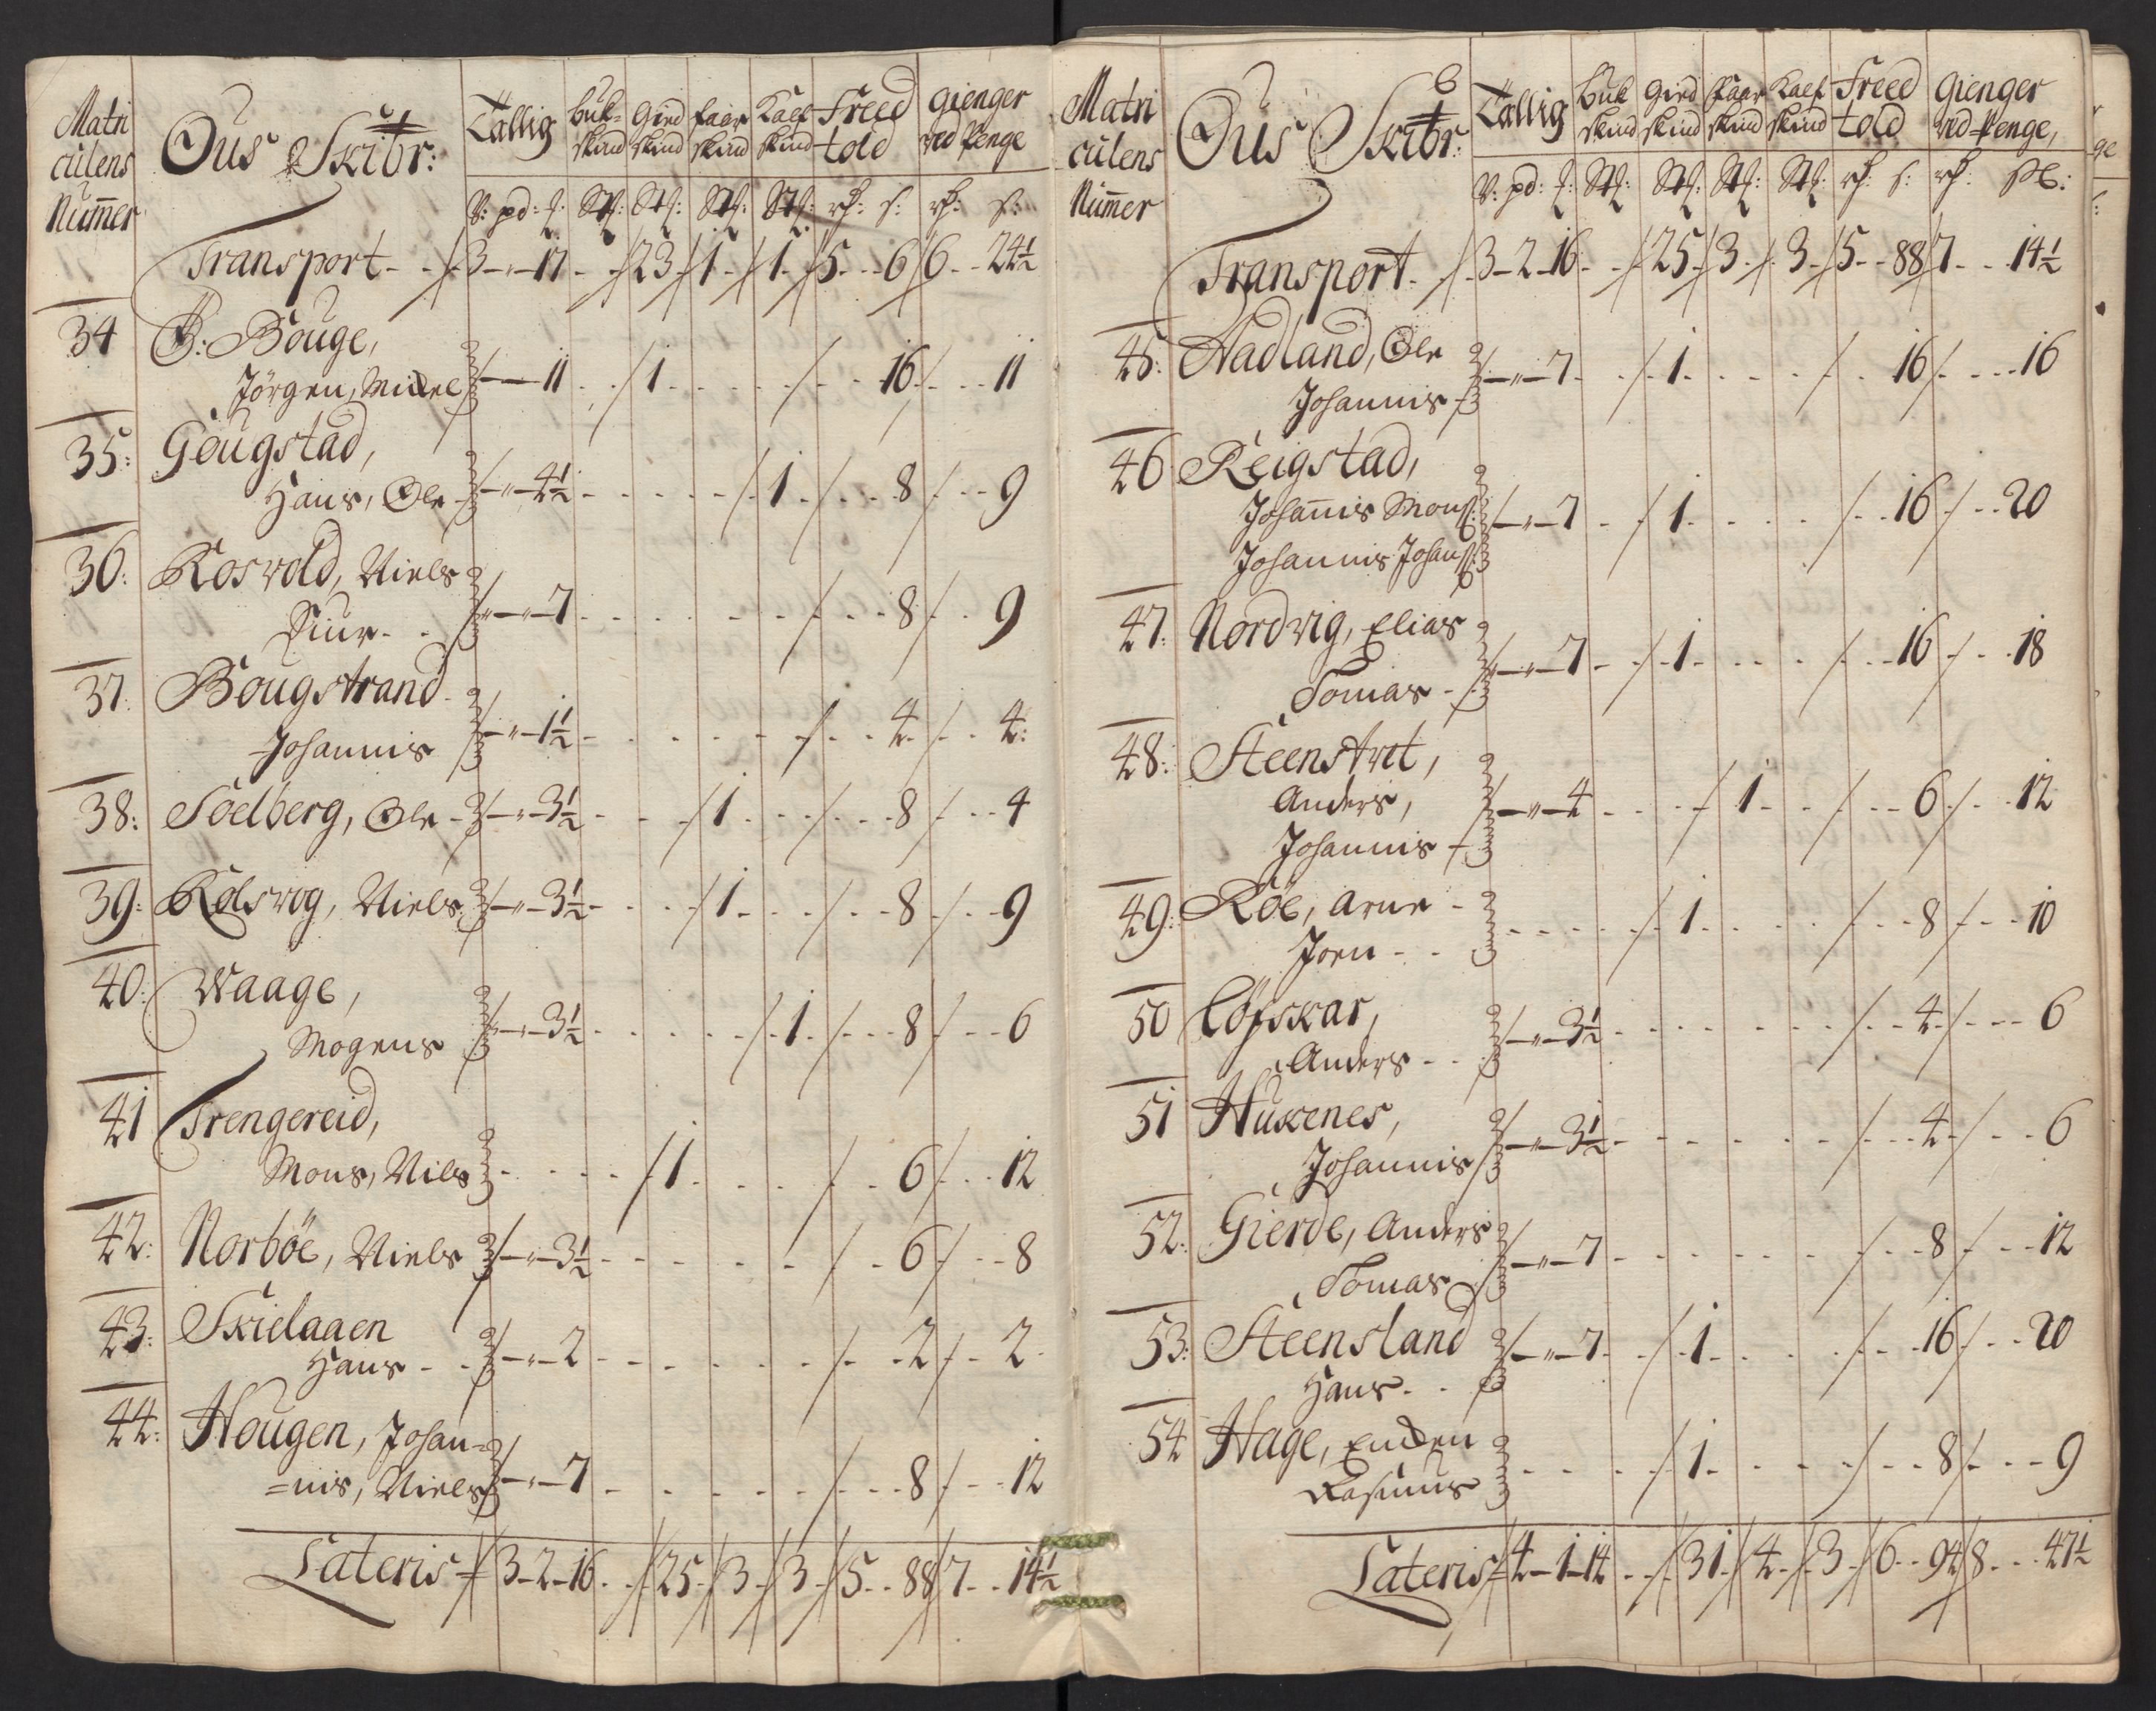 Matri
culens
Nummer
Ous Skibr:
Tallig
buk=
skind
Gied
skind
faar
skind
Kalf
skind
Freed
told
gienger
ved Penge
V: pd: f:
Stf:
Stf:
Stf:
Stf:
rh: s:
rh: s:
Transport - - 3 - " - 17 - - 23 - 1 - 1 - 5 - - 6 6 - - 24½
34 B: Bouge,
Jörgen, Mickel - - 11 - - 1 - - - - - - 16 - - - 11
35: Gougstad,
Hans, Ole - " - 4½ - - - - - 1 - - - 8 - - - 9
36: Rosvold, Niels
Siur - - - " - 7 - - - - - - - - 8 - - 9
37: Bougstrand -
Johannis - " - 1½ - - - - - - - - 4 - - 4:
38: Soelberg, Ole - - " - 3½ - - - 1 - - - - - 8 - - - 4
39: Kolsvog, Niels - " - 3½ - - - 1 - - - - - 8 - - - 9
40: Waage,
Mogens - " - 3½ - - - - - 1 - - - 8 - - - 6
41 Trengereid,
Mons, Nils - - - - - 1 - - - - - 6 - - - 12
42: Norböe, Niels - " - 3½ - - - - - - - 6 - - - 8
43: Skielaaen
Hans - - - " - 2 - - - - - - - - 2 - - 2 -
44: Hougen, Johan-
=nis, Niels - " - 7 - - - - - - - - 8 - - - 12
Lateris 3 - 2 - 16 - - 25 - 3 - 3 - 5 - - 88 7 - - 14½
Matri
culens
Nummer
Ous Skibr:
Tallig
buk
skind
Gied
skind
Faar
skind
Kalf
skind
Freed
told
Gienger
ved Penge,
V: pd: f:
Stf:
Stf:
Stf:
Stf:
rh: s:
rh: sk:
Transport - 3 - 2 - 16 - - 25 - 3 - 3 - 5 - - 88 7 - - 14½
45: Aadland, Ole
Johannis - - " - 7 - - 1 - - - - - - 16 - - - 16
46 Reigstad,
Johannis Mons:
Johannis Johanss: - " - 7 - - 1 - - - - - - 16 - - - 20
47: Nordvig, Elias
Tomas - - " - 7 - - 1 - - - - - - 16 - - - 18
48: Steenstvet,
Anders,
Johannis - - " - 4 - - - - 1 - - - - 6 - - - 12
49: Röe, Arne -
Joen - - - - - - - 1 - - - - - - 8 - - - 10
50 Löfskar,
Anders - - - " - 3½ - - - - - - - - - 4 - - - 6
51 Hukenes,
Johannis - " - 3½ - - - - - - - - - 4 - - - 6
52: Gierde, Anders
Tomas - " - 7 - - - - - - - - - 8 - - - 12
53: Steensland
Hans - - - " - 7 - - 1 - - - - - - 16 - - - 20
54 Hage,
Rasmus - - - - - 1 - - - - - - 8 - - - 9
Lateris 4 - 1 - 14 - - 31 - 4 - 3 - 6 - - 94 8 - - 47½